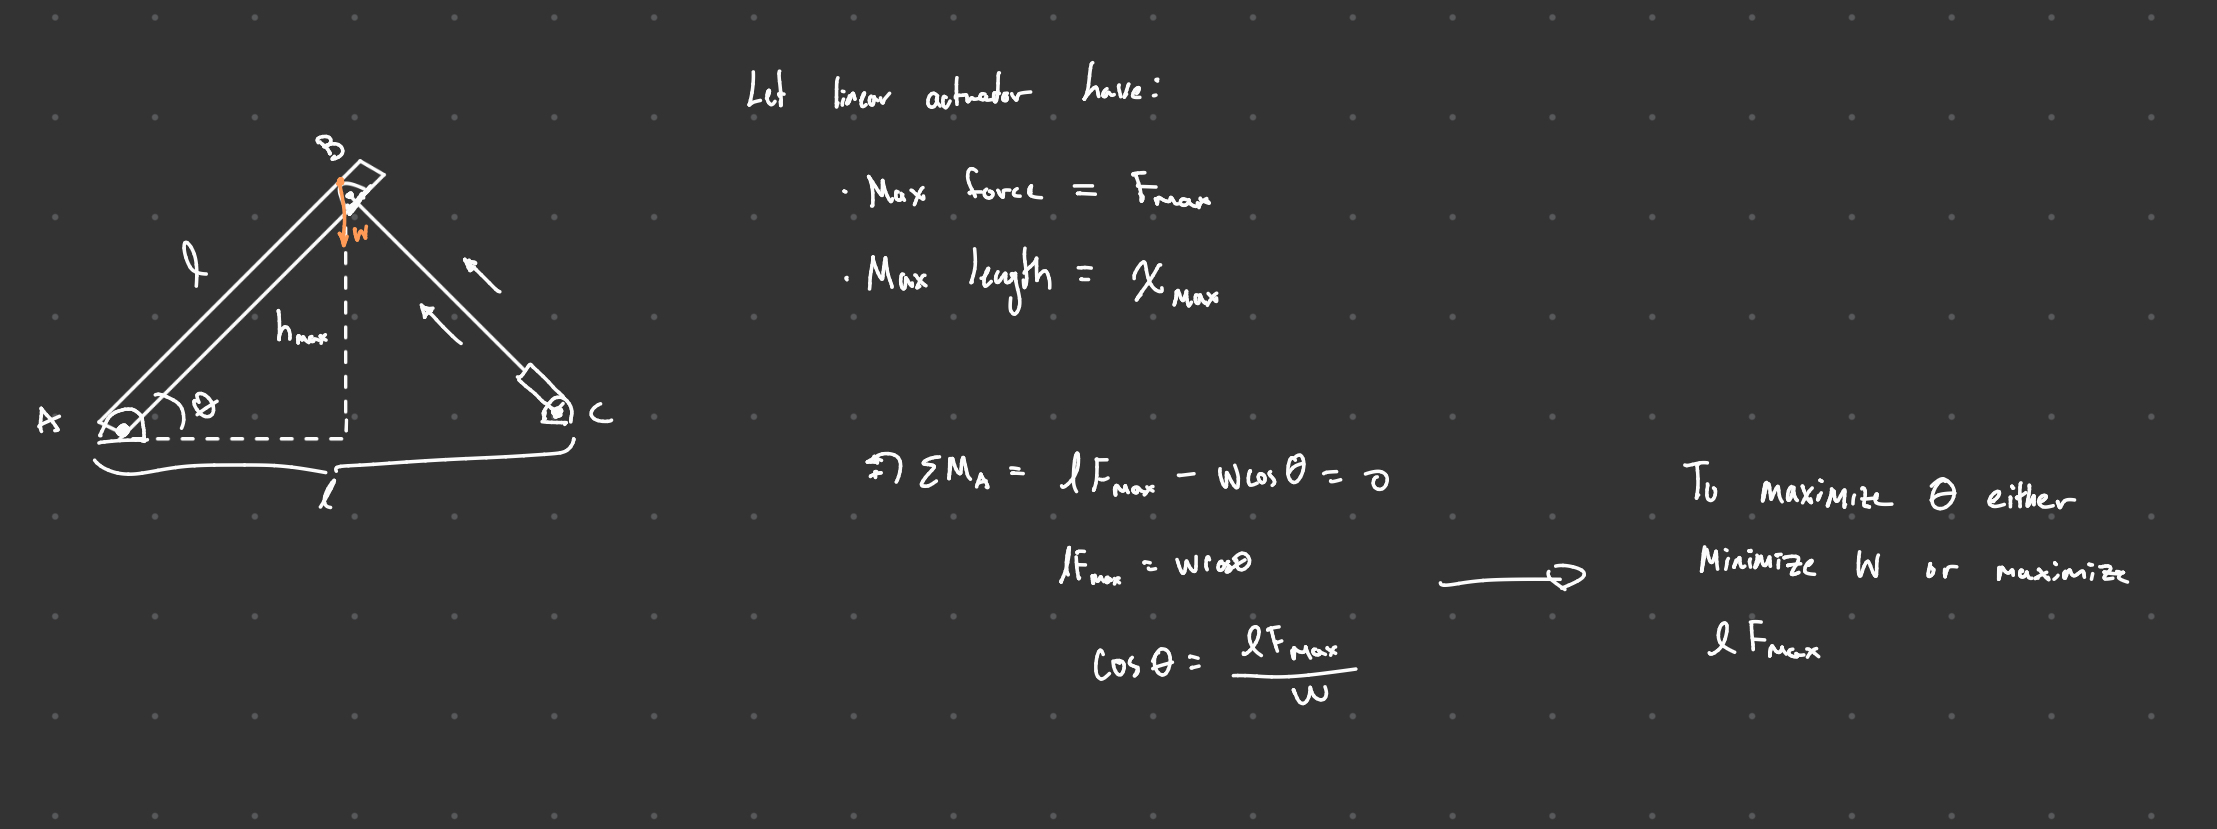 Let linear actuator have:
· Max force = Fmax
· Max length = xmax
B
W
l
hmax
θ
A
C
l
ΣMA = lFmax - Wcosθ = 0
lFmax = Wcosθ
cosθ = lFmax / W
To maximize θ either
Minimize W or maximize
lFmax